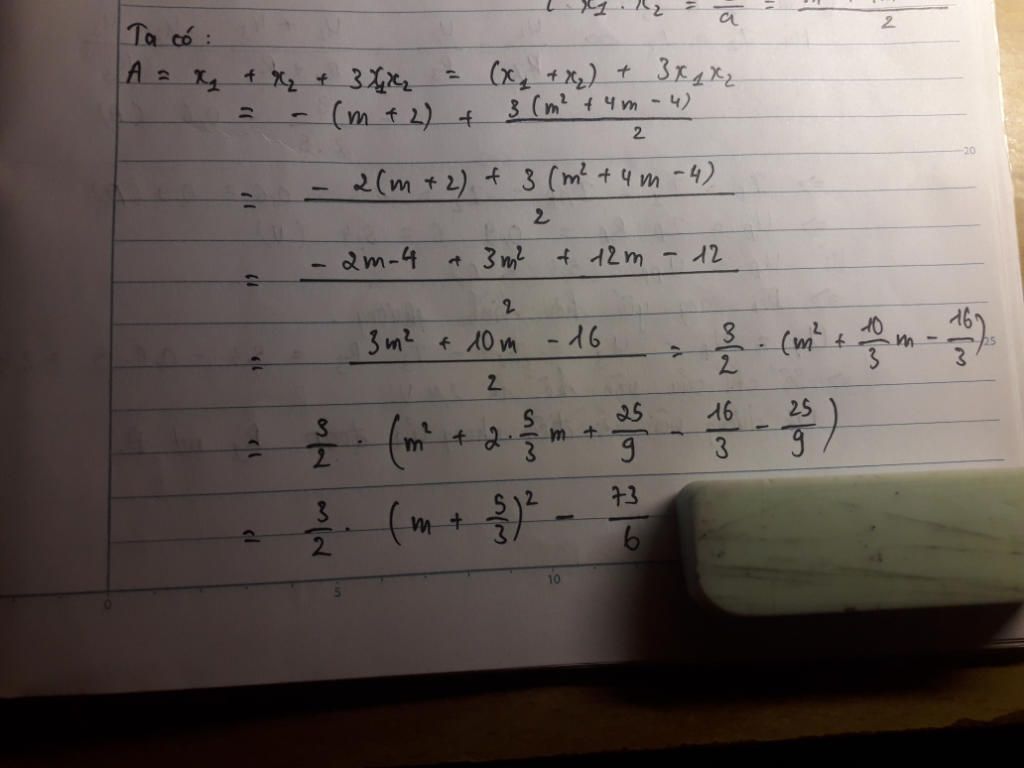 x₁ . x₂ = c/a = /2
Ta có :
A = x₁ + x₂ + 3x₁x₂ = (x₁ + x₂) + 3x₁x₂
= - (m + 2) + 3(m² + 4m - 4)/2
= - 2(m + 2) + 3(m² + 4m - 4)/2
= - 2m - 4 + 3m² + 12m - 12/2
= 3m² + 10m - 16/2 = 3/2 . (m² + 10/3 m - 16/3)
= 3/2 . (m² + 2 . 5/3 m + 25/9 - 16/3 - 25/9)
= 3/2 . (m + 5/3)² - 73/6
20
25
0 5 10